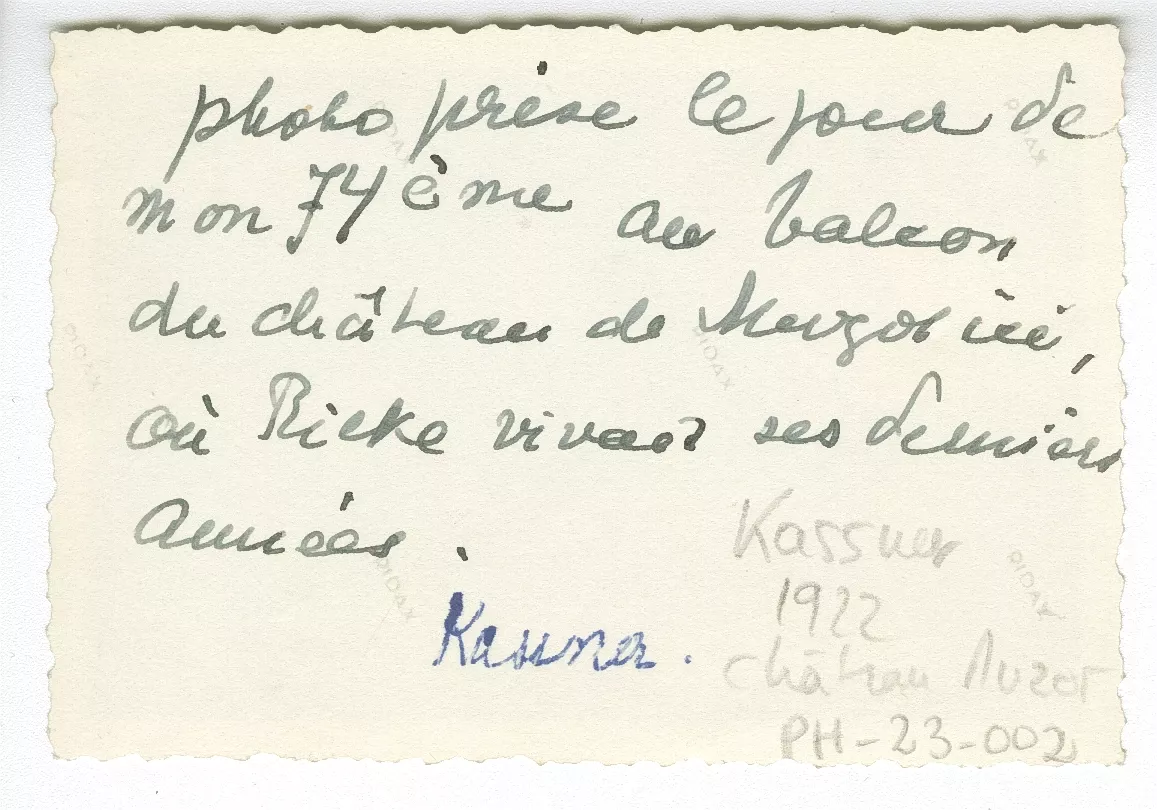 photo prise le jour de
mon 74ème au balcon
du château de Muzot ici,
où Rilke vivait ses derniers
années.
Kassner.
Kassner
1922
château Muzot
PH-23-002
RIDAX
RIDAX
RIDAX
RIDAX
RIDAX
RIDAX